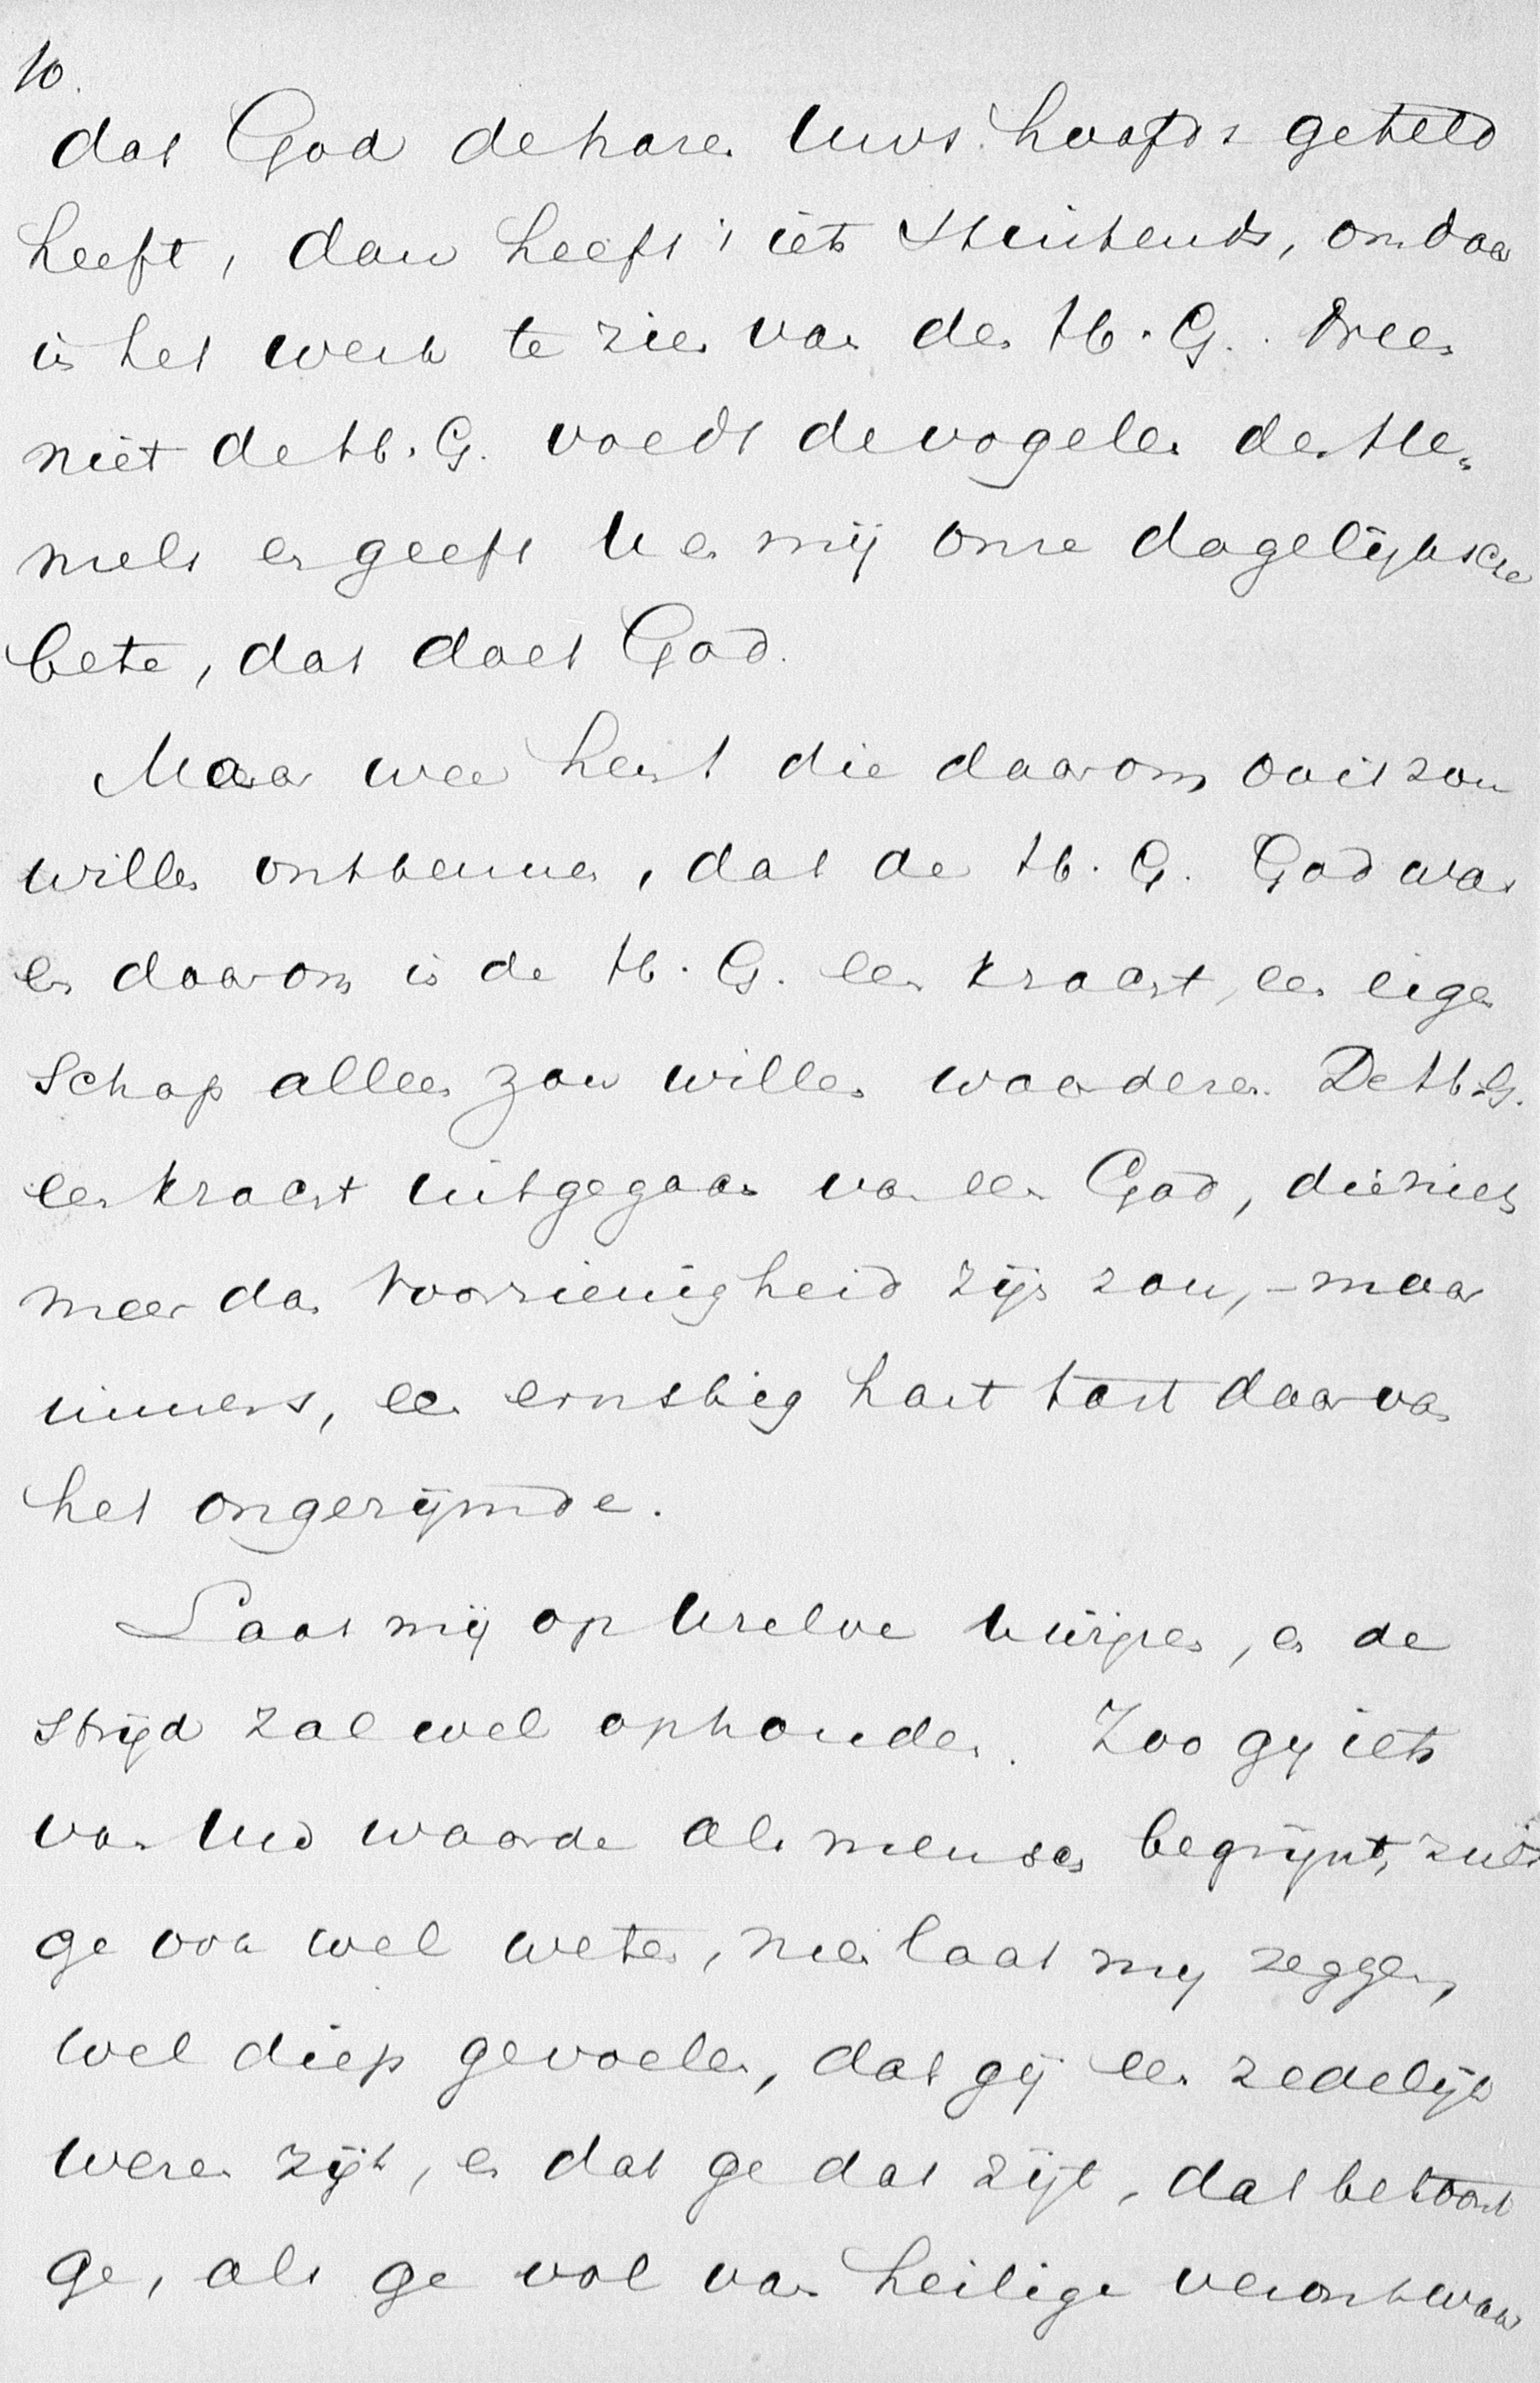 10.
dat God de haren Uws hoofds geteld
heeft, dan heeft 't iets stuitends, om daar
in het werk te zien van den H. G. Neen
niet de H. G. voedt de vogelen des He-
mels en geeft U en mij onze dagelijksche
bete, dat doet God.
Maar wee hem die daarom ooit zou
willen ontkennen, dat de H. G. God was
en daarom in de H. G. een kracht, een eigen
schap alleen zou willen waarderen. De H. G.
een kracht uitgegaan van een God, die niets
meer dan Voorzienigheid zijn zou, - maar
immers, een ernstig hart tast daarvan
het ongerijmde.
Laat mij op Uzelve wijzen, en de
strijd zal wel ophouden. Zoo gij iets
van Uw waarde als mensch begrijpt, zult
ge ook wel weten, neen laat mij zeggen,
wel diep gevoelen, dat gij een zedelijk
wezen zijt, en dat ge dat zijt, dat betoont
ge, als ge vol van heilige verontwaar